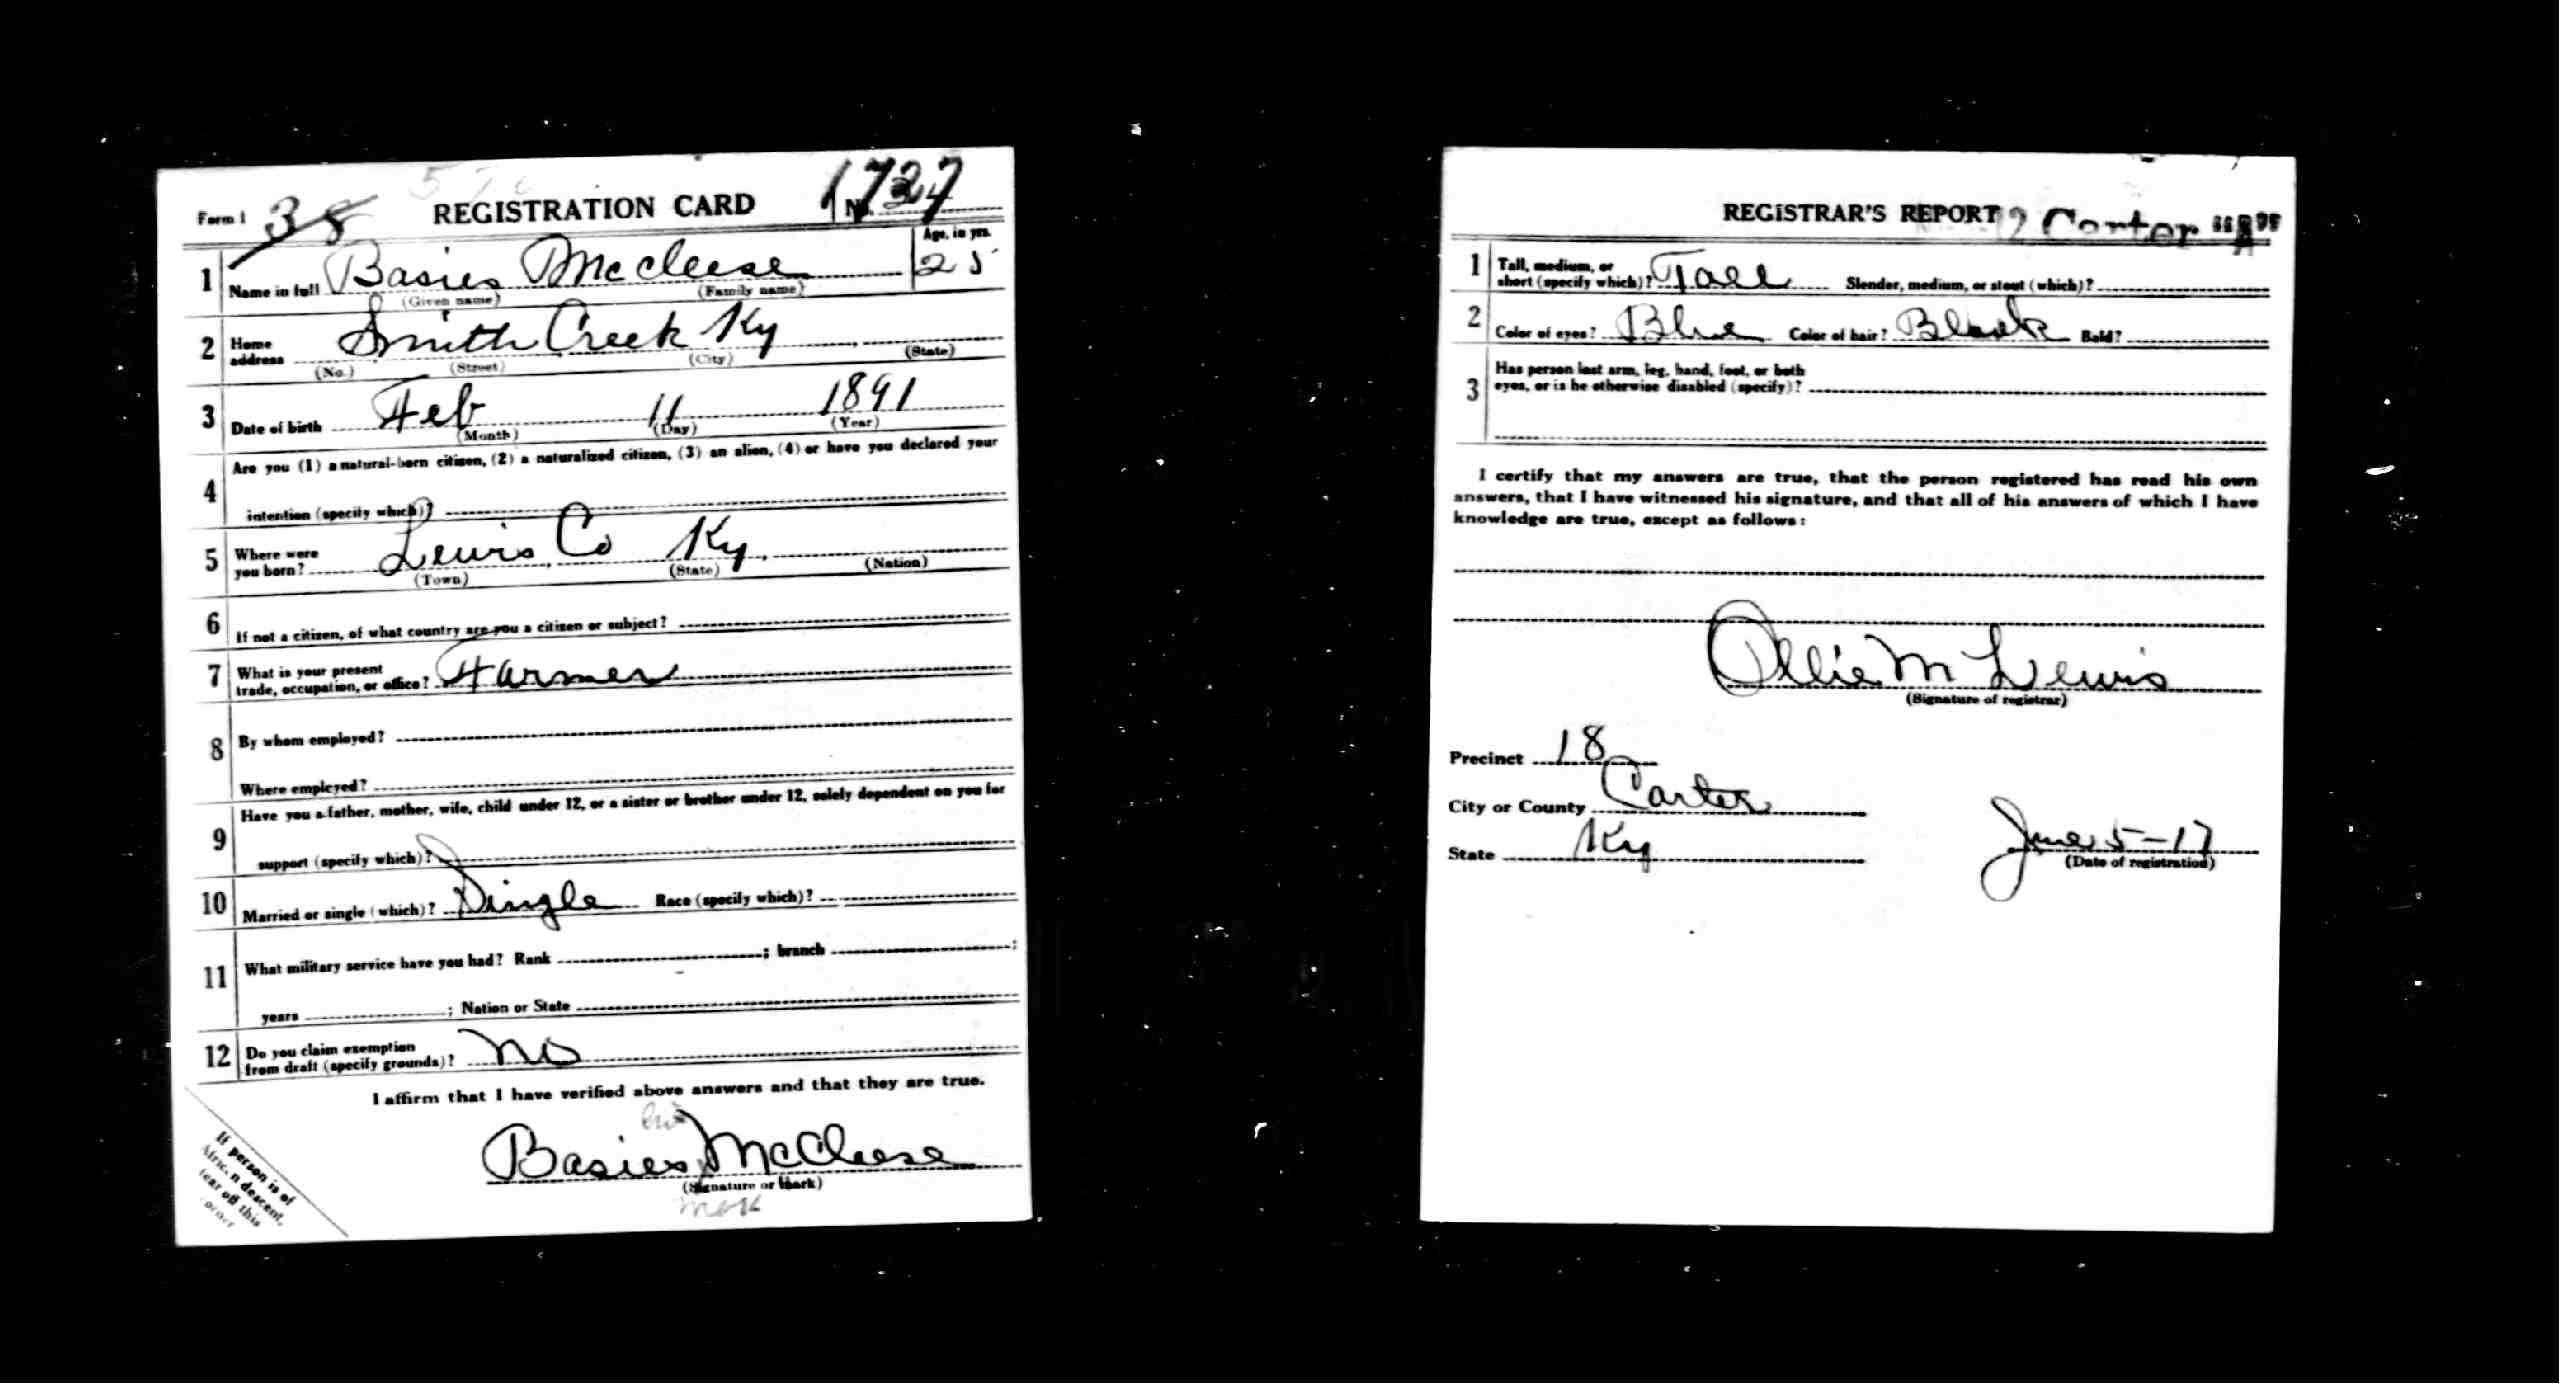 Form 1 38 REGISTRATION CARD No. 1727
1 Name in full Basies McCleese Age, in yrs. 25
(Given name) (Family name)
2 Home address Smith Creek Ky
(No.) (Street) (City) (State)
3 Date of birth Feb 11 1891
(Month) (Day) (Year)
4 Are you (1) a natural-born citizen, (2) a naturalized citizen, (3) an alien, (4) or have you declared your
intention (specify which)?
5 Where were you born? Lewis Co Ky.
(Town) (State) (Nation)
6 If not a citizen, of what country are you a citizen or subject?
7 What is your present trade, occupation, or office? Farmer
8 By whom employed?
Where employed?
9 Have you a father, mother, wife, child under 12, or a sister or brother under 12, solely dependent on you for
support (specify which)?
10 Married or single (which)? Single Race (specify which)?
11 What military service have you had? Rank ; branch ;
years ; Nation or State
12 Do you claim exemption from draft (specify grounds)? No
I affirm that I have verified above answers and that they are true.
his
Basies McCleese
(Signature or mark)
mark
If person is of
African descent,
tear off this
corner
REGISTRAR'S REPORT Carter "A"
1 Tall, medium, or short (specify which)? Tall Slender, medium, or stout (which)?
2 Color of eyes? Blue Color of hair? Black Bald?
3 Has person lost arm, leg, hand, foot, or both
eyes, or is he otherwise disabled (specify)?
I certify that my answers are true, that the person registered has read his own
answers, that I have witnessed his signature, and that all of his answers of which I have
knowledge are true, except as follows:
Ollie M Lewis
(Signature of registrar)
Precinct 18
City or County Carter
State Ky June 5-17
(Date of registration)